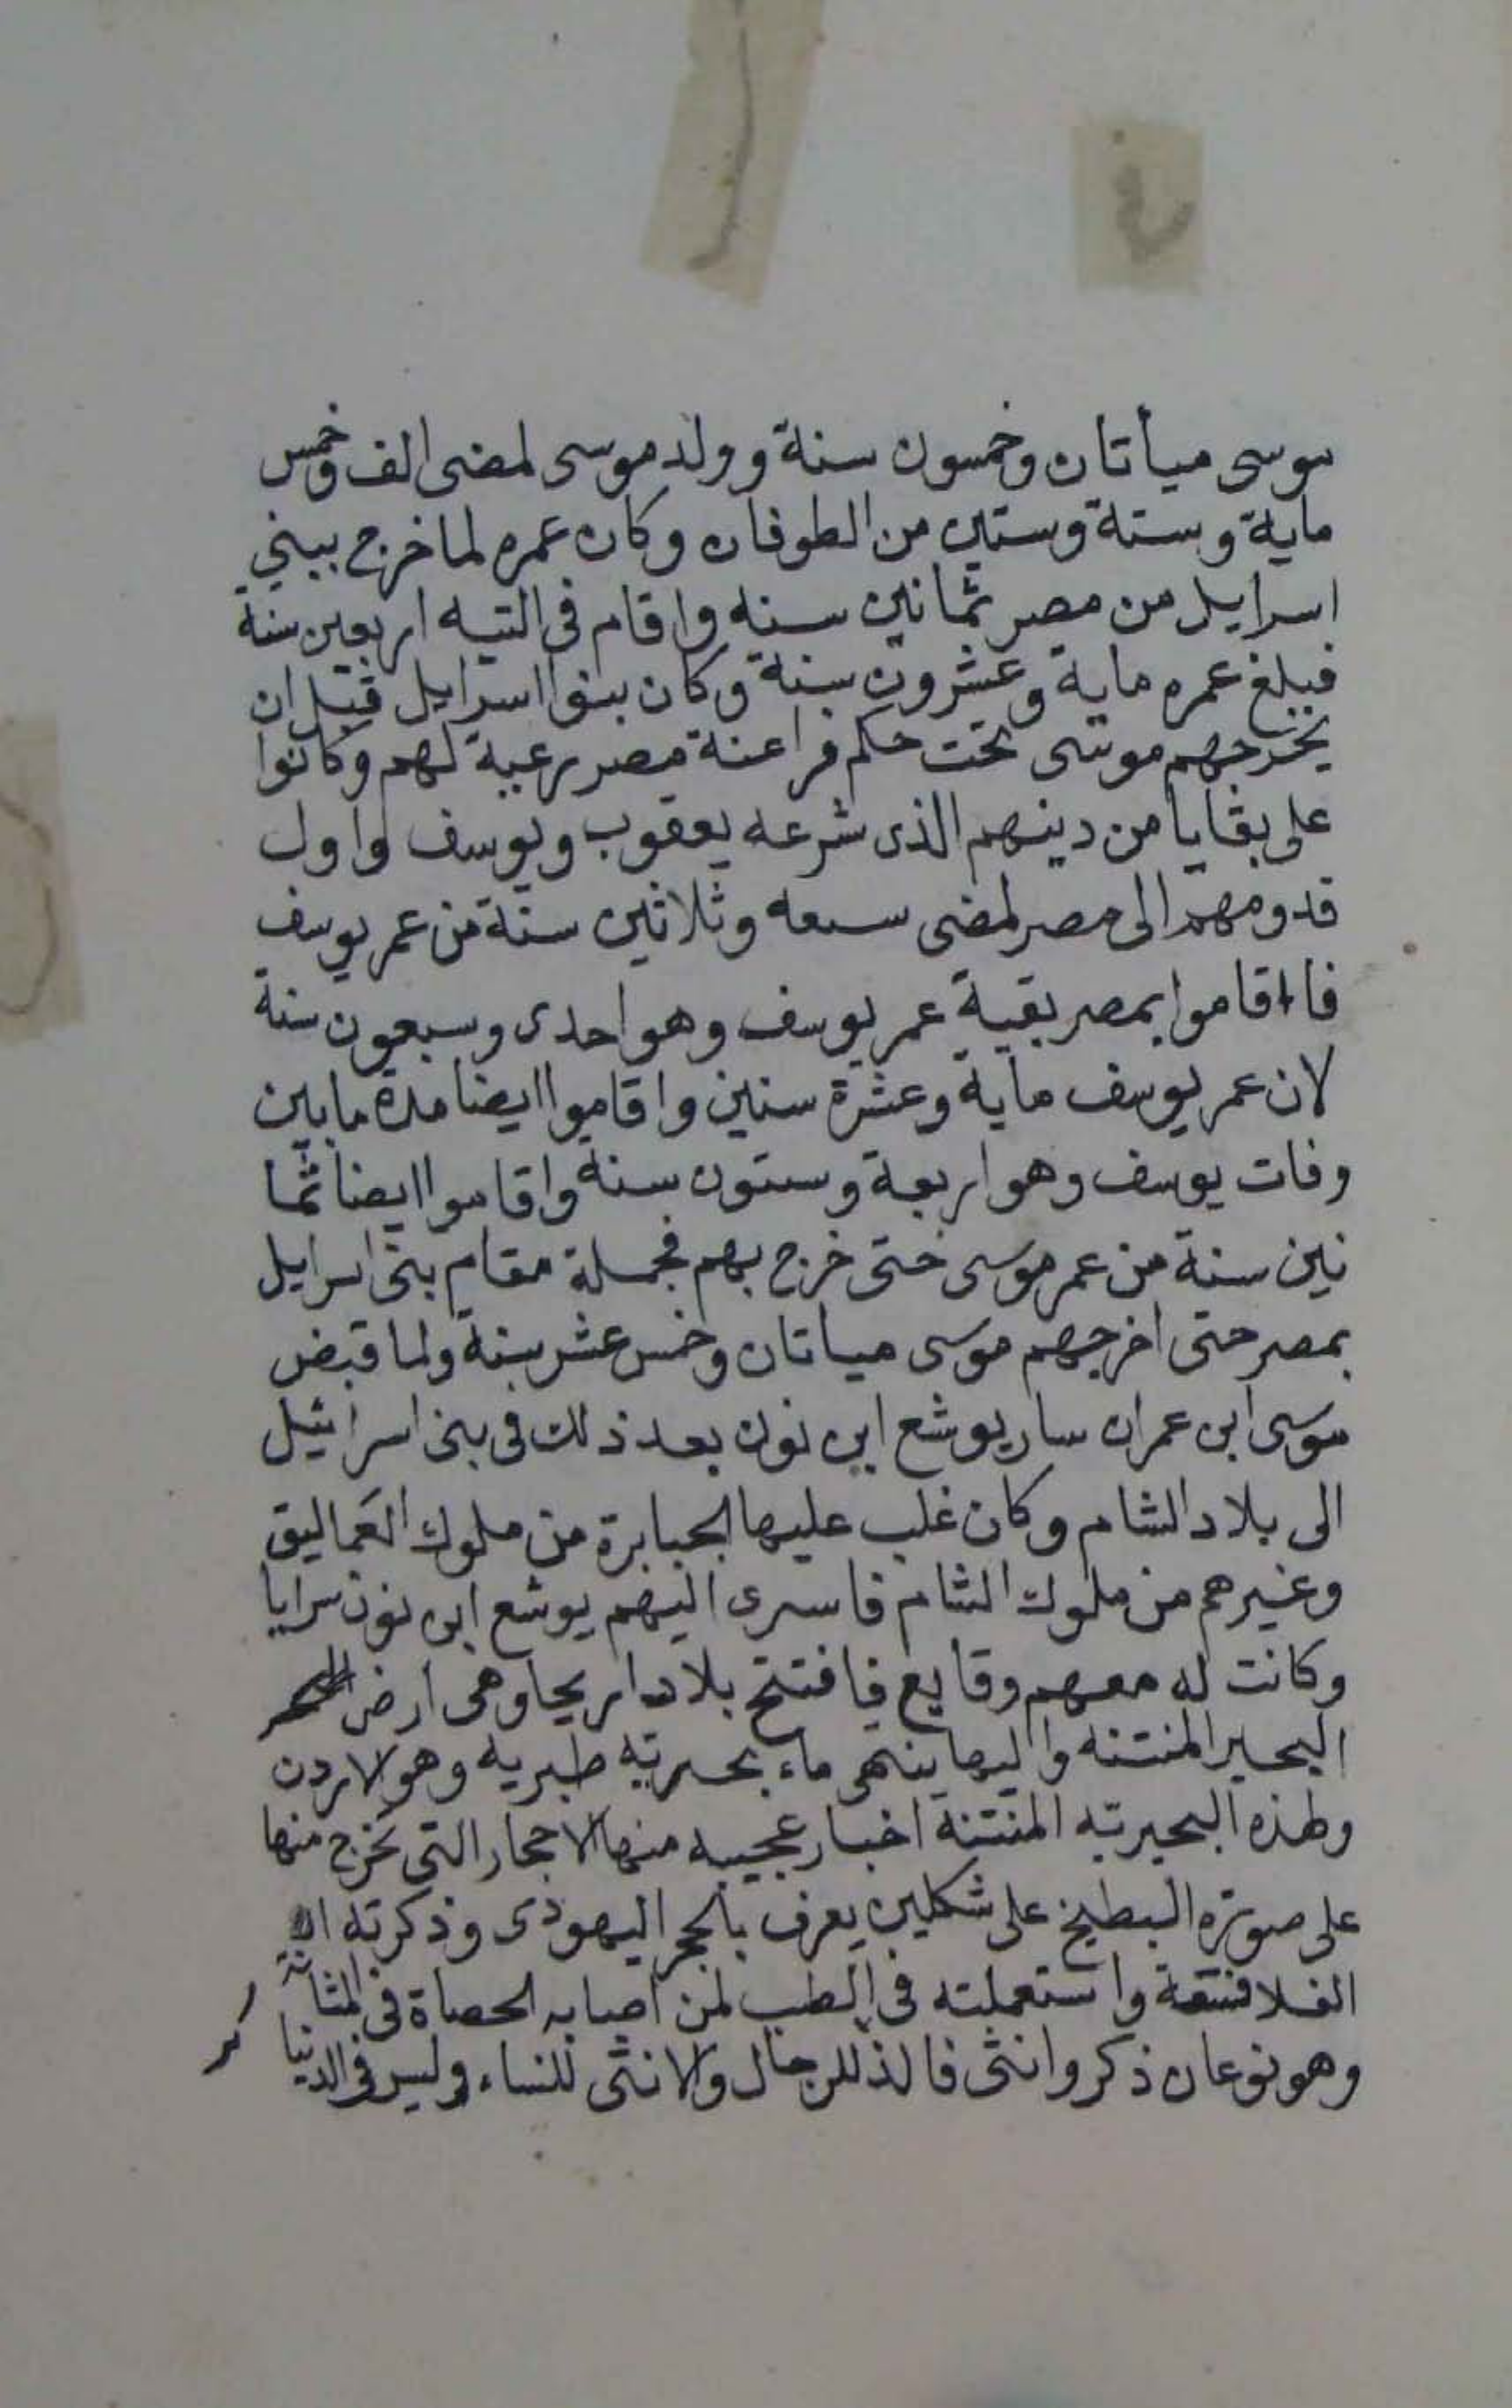 موسى ميأتان وخمسون سنة وولد موسى لمضى الف وخمس
ماية وستة وستين من الطوفان وكان عمره لما خرج ببني
اسرايل من مصر ثمانين سنه واقام فى التيه اربعين سنة
فبلغ عمره ماية وعشرون سنة وكان بنوا اسرايل قبل ان
يخرجهم موسى تحت حكم فراعنة مصر رعية لهم وكانوا
على بقايا من دينهم الذى شرعه يعقوب ويوسف واول
قدومهم الى مصر لمضى سبعه وثلاثين سنة من عمر يوسف
فااقاموا بمصر بقية عمر يوسف وهو احدى وسبعون سنة
لان عمر يوسف ماية وعشرة سنين واقاموا ايضا مدة مابين
وفات يوسف وهو اربعة وستون سنة واقاموا ايضا ثما
نين سنة من عمر موسى حتى خرج بهم فجملة مقام بنى اسرايل
بمصر حتى اخرجهم موسى مياتان وخمس عشر سنة ولما قبض
موسى ابن عمران سار يوشع ابن نون بعد ذلك فى بنى اسرائيل
الى بلاد الشام وكان غلب عليها الجبابرة من ملوك العَماليق
وغيرهم من ملوك الشام فاسرى اليهم يوشع ابن نون سرايا
وكانت له معهم وقايع فافتتح بلاد اريحا وهى ارض
البحير المنتنه واليها ينهى ماء بحيرته طبريه وهو لاردن
ولهذه البحيرته المنتنة اخبار عجيبه منها لاحجار التى تخرج منها
على صورة البطيخ على شكلين يعرف بالحجر اليهودى وذكرته
الفلاسفة واستعملته فى الطب لمن اصابه الحصاة فى المثانة
وهو نوعان ذكر وانثى فالذللرجال ولانثى للنساء وليس فى الدنيا